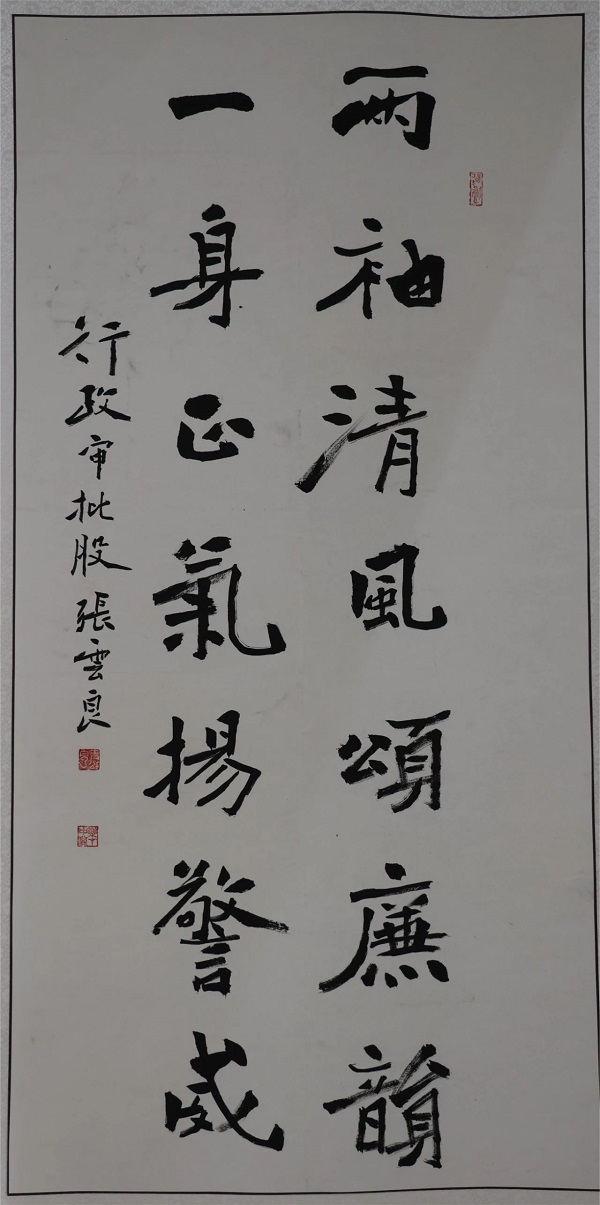 兩袖清風頌廉韻
一身正氣揚警威
行政审批股張雲良